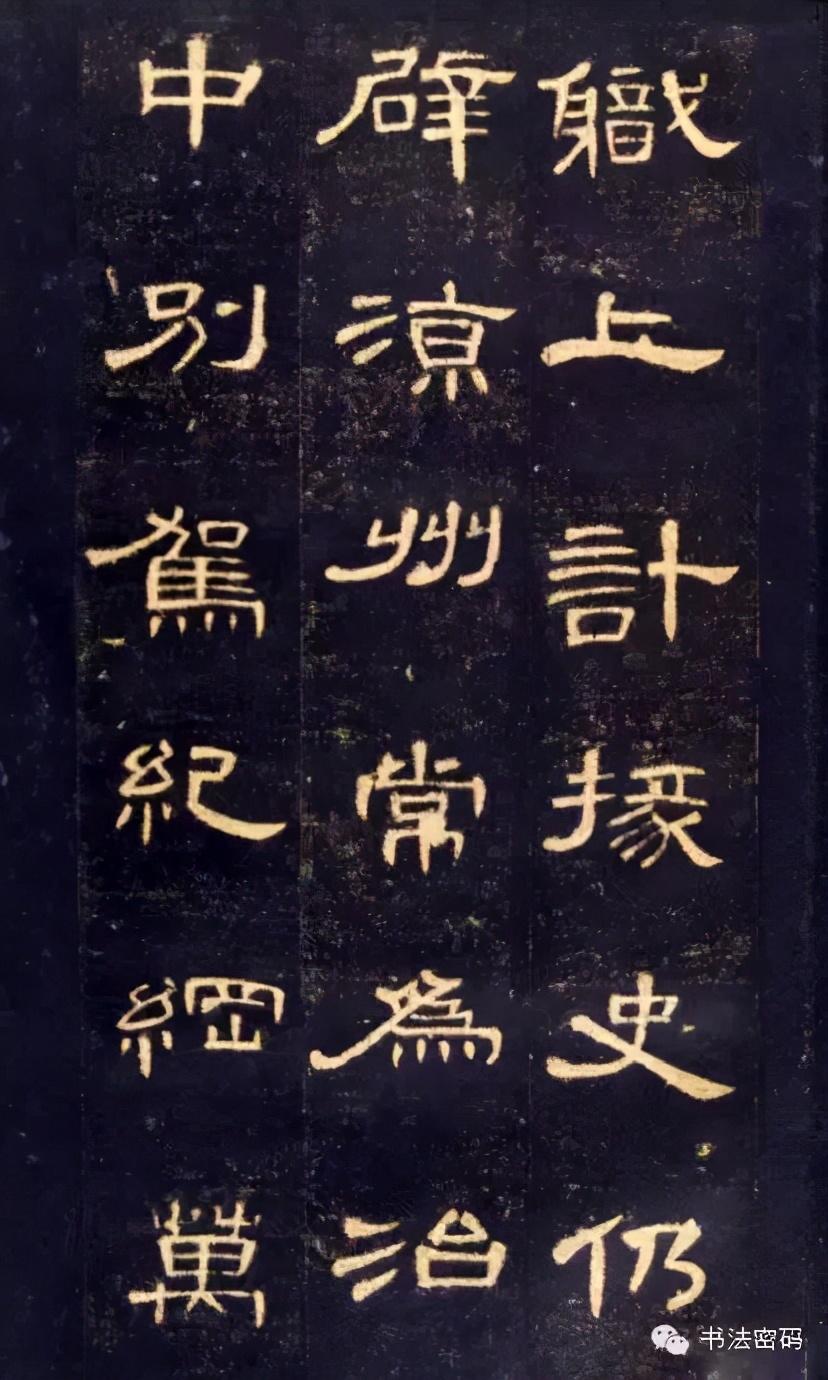 職上計掾史仍
辟涼州常為治
中別駕紀綱萬
书法密码